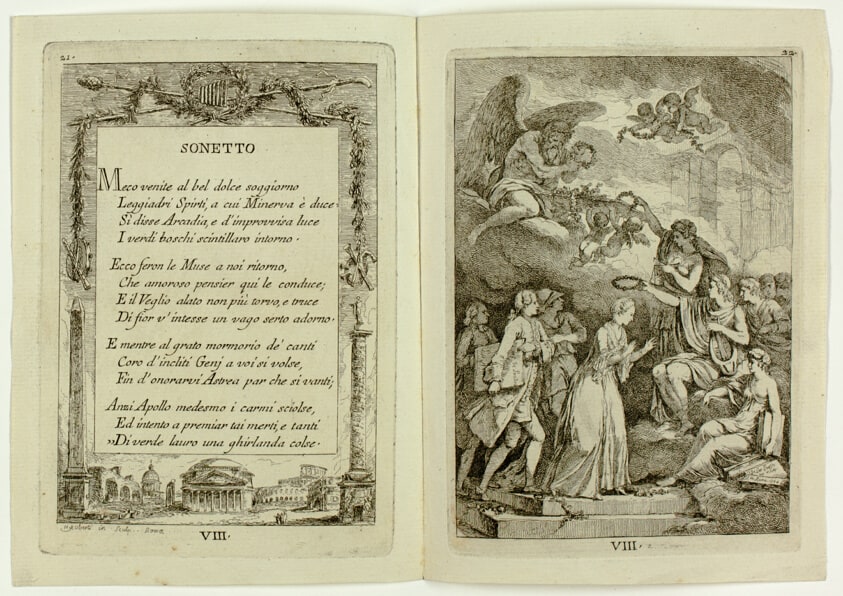 21.
SONETTO
Meco venite al bel dolce soggiorno
Leggiadri Spirti, a cui Minerva è duce;
Sì disse Arcadia, e d'improvvisa luce
I verdi boschi scintillaro intorno.
Ecco feron le Muse a noi ritorno,
Che amoroso pensier quì le conduce;
E il Veglio alato non più torvo, e truce
Di fior v'intesse un vago serto adorno.
E mentre al grato mormorio de' canti
Coro d'incliti Genj a voi si volse,
Fin d'onorarvi Astrea par che si vanti;
Anzi Apollo medesmo i carmi sciolse,
Ed intento a premiar tai merti, e tanti
"Di verde lauro una ghirlanda colse.
in Roma
VIII.
22.
VIII.